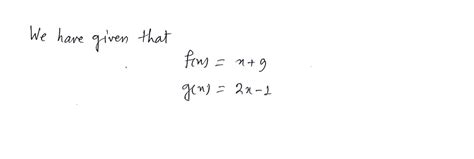 We have given that
f(x) = x+9
g(x) = 2x-1